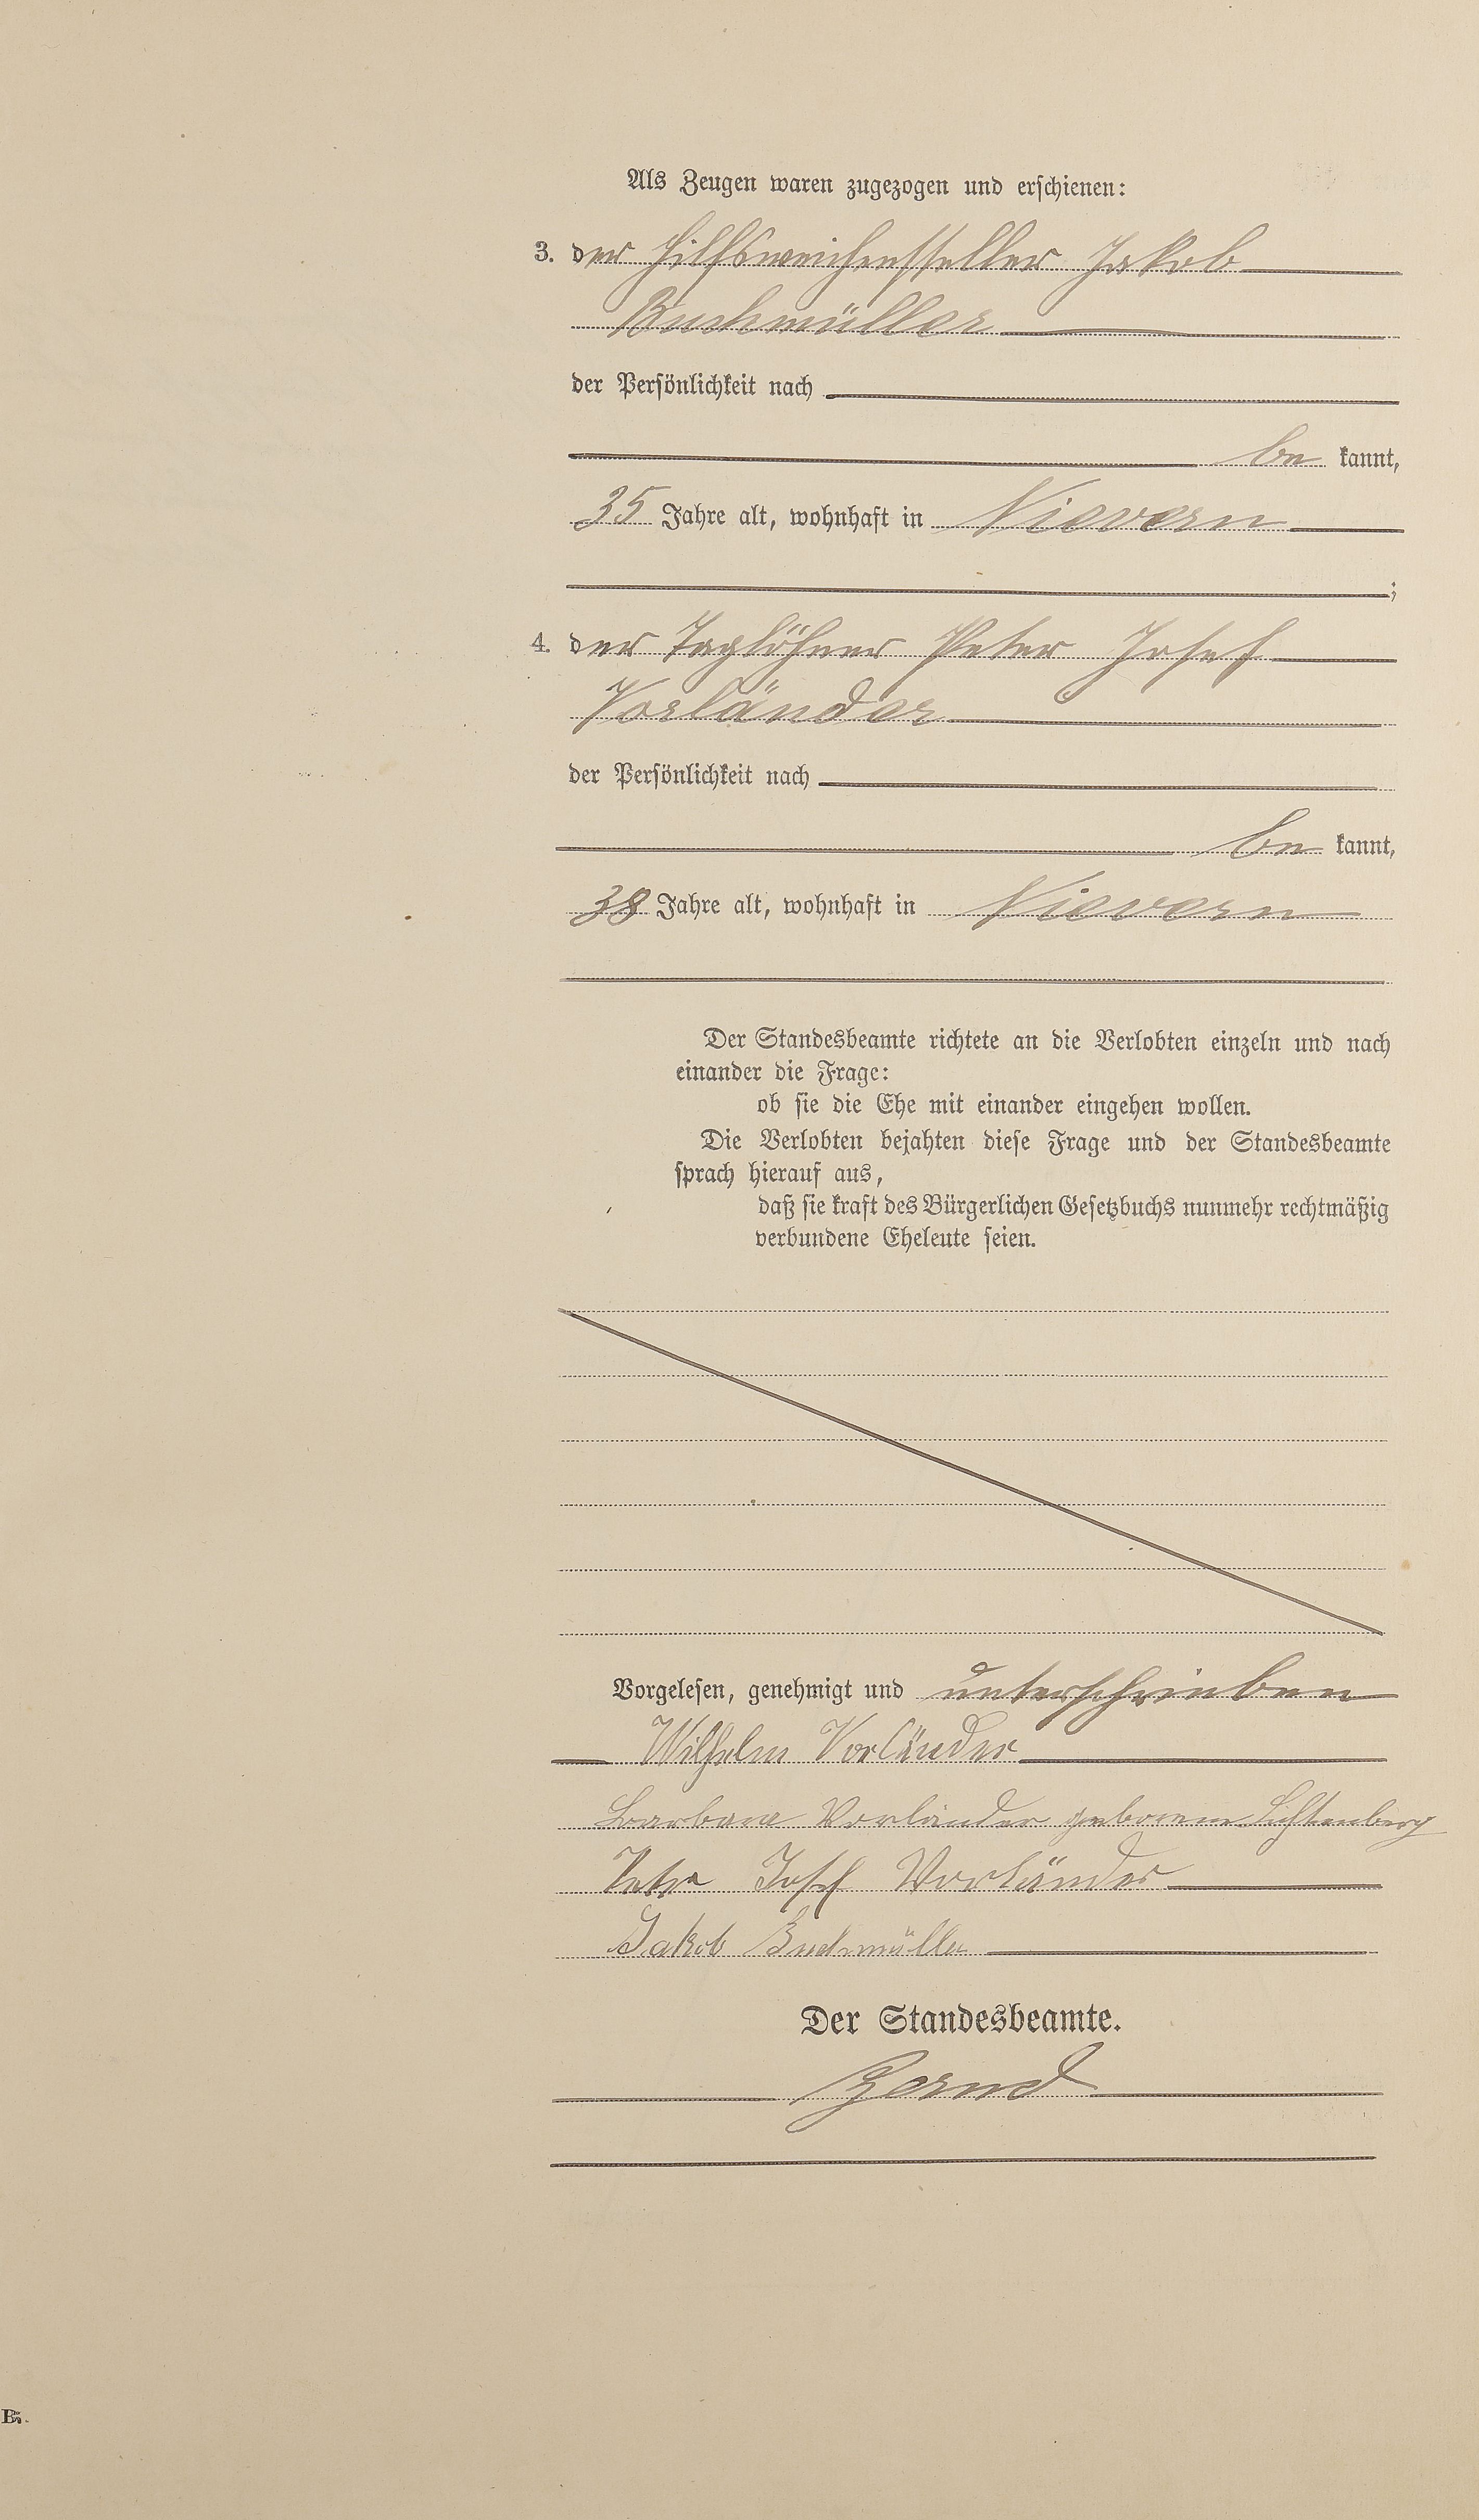 Als Zeugen waren zugezogen und erschienen:
3. der Hilfsweichensteller Jakob
Buchmüller
der Persönlichkeit nach
be kannt,
35 Jahre alt, wohnhaft in Nievern
;
4. der Taglöhner Peter Josef
Vorländer
der Persönlichkeit nach
be kannt,
38 Jahre alt, wohnhaft in Nievern
Der Standesbeamte richtete an die Verlobten einzeln und nach
einander die Frage:
ob sie die Ehe mit einander eingehen wollen.
Die Verlobten bejahten diese Frage und der Standesbeamte
sprach hierauf aus,
daß sie kraft des Bürgerlichen Gesetzbuchs nunmehr rechtmäßig
verbundene Eheleute seien.
Vorgelesen, genehmigt und unterschrieben
Wilhelm Vorländer
Barbara Vorländer geborene Lichtenberg
Peter Josef Vorländer
Jakob Buchmüller
Der Standesbeamte.
B.